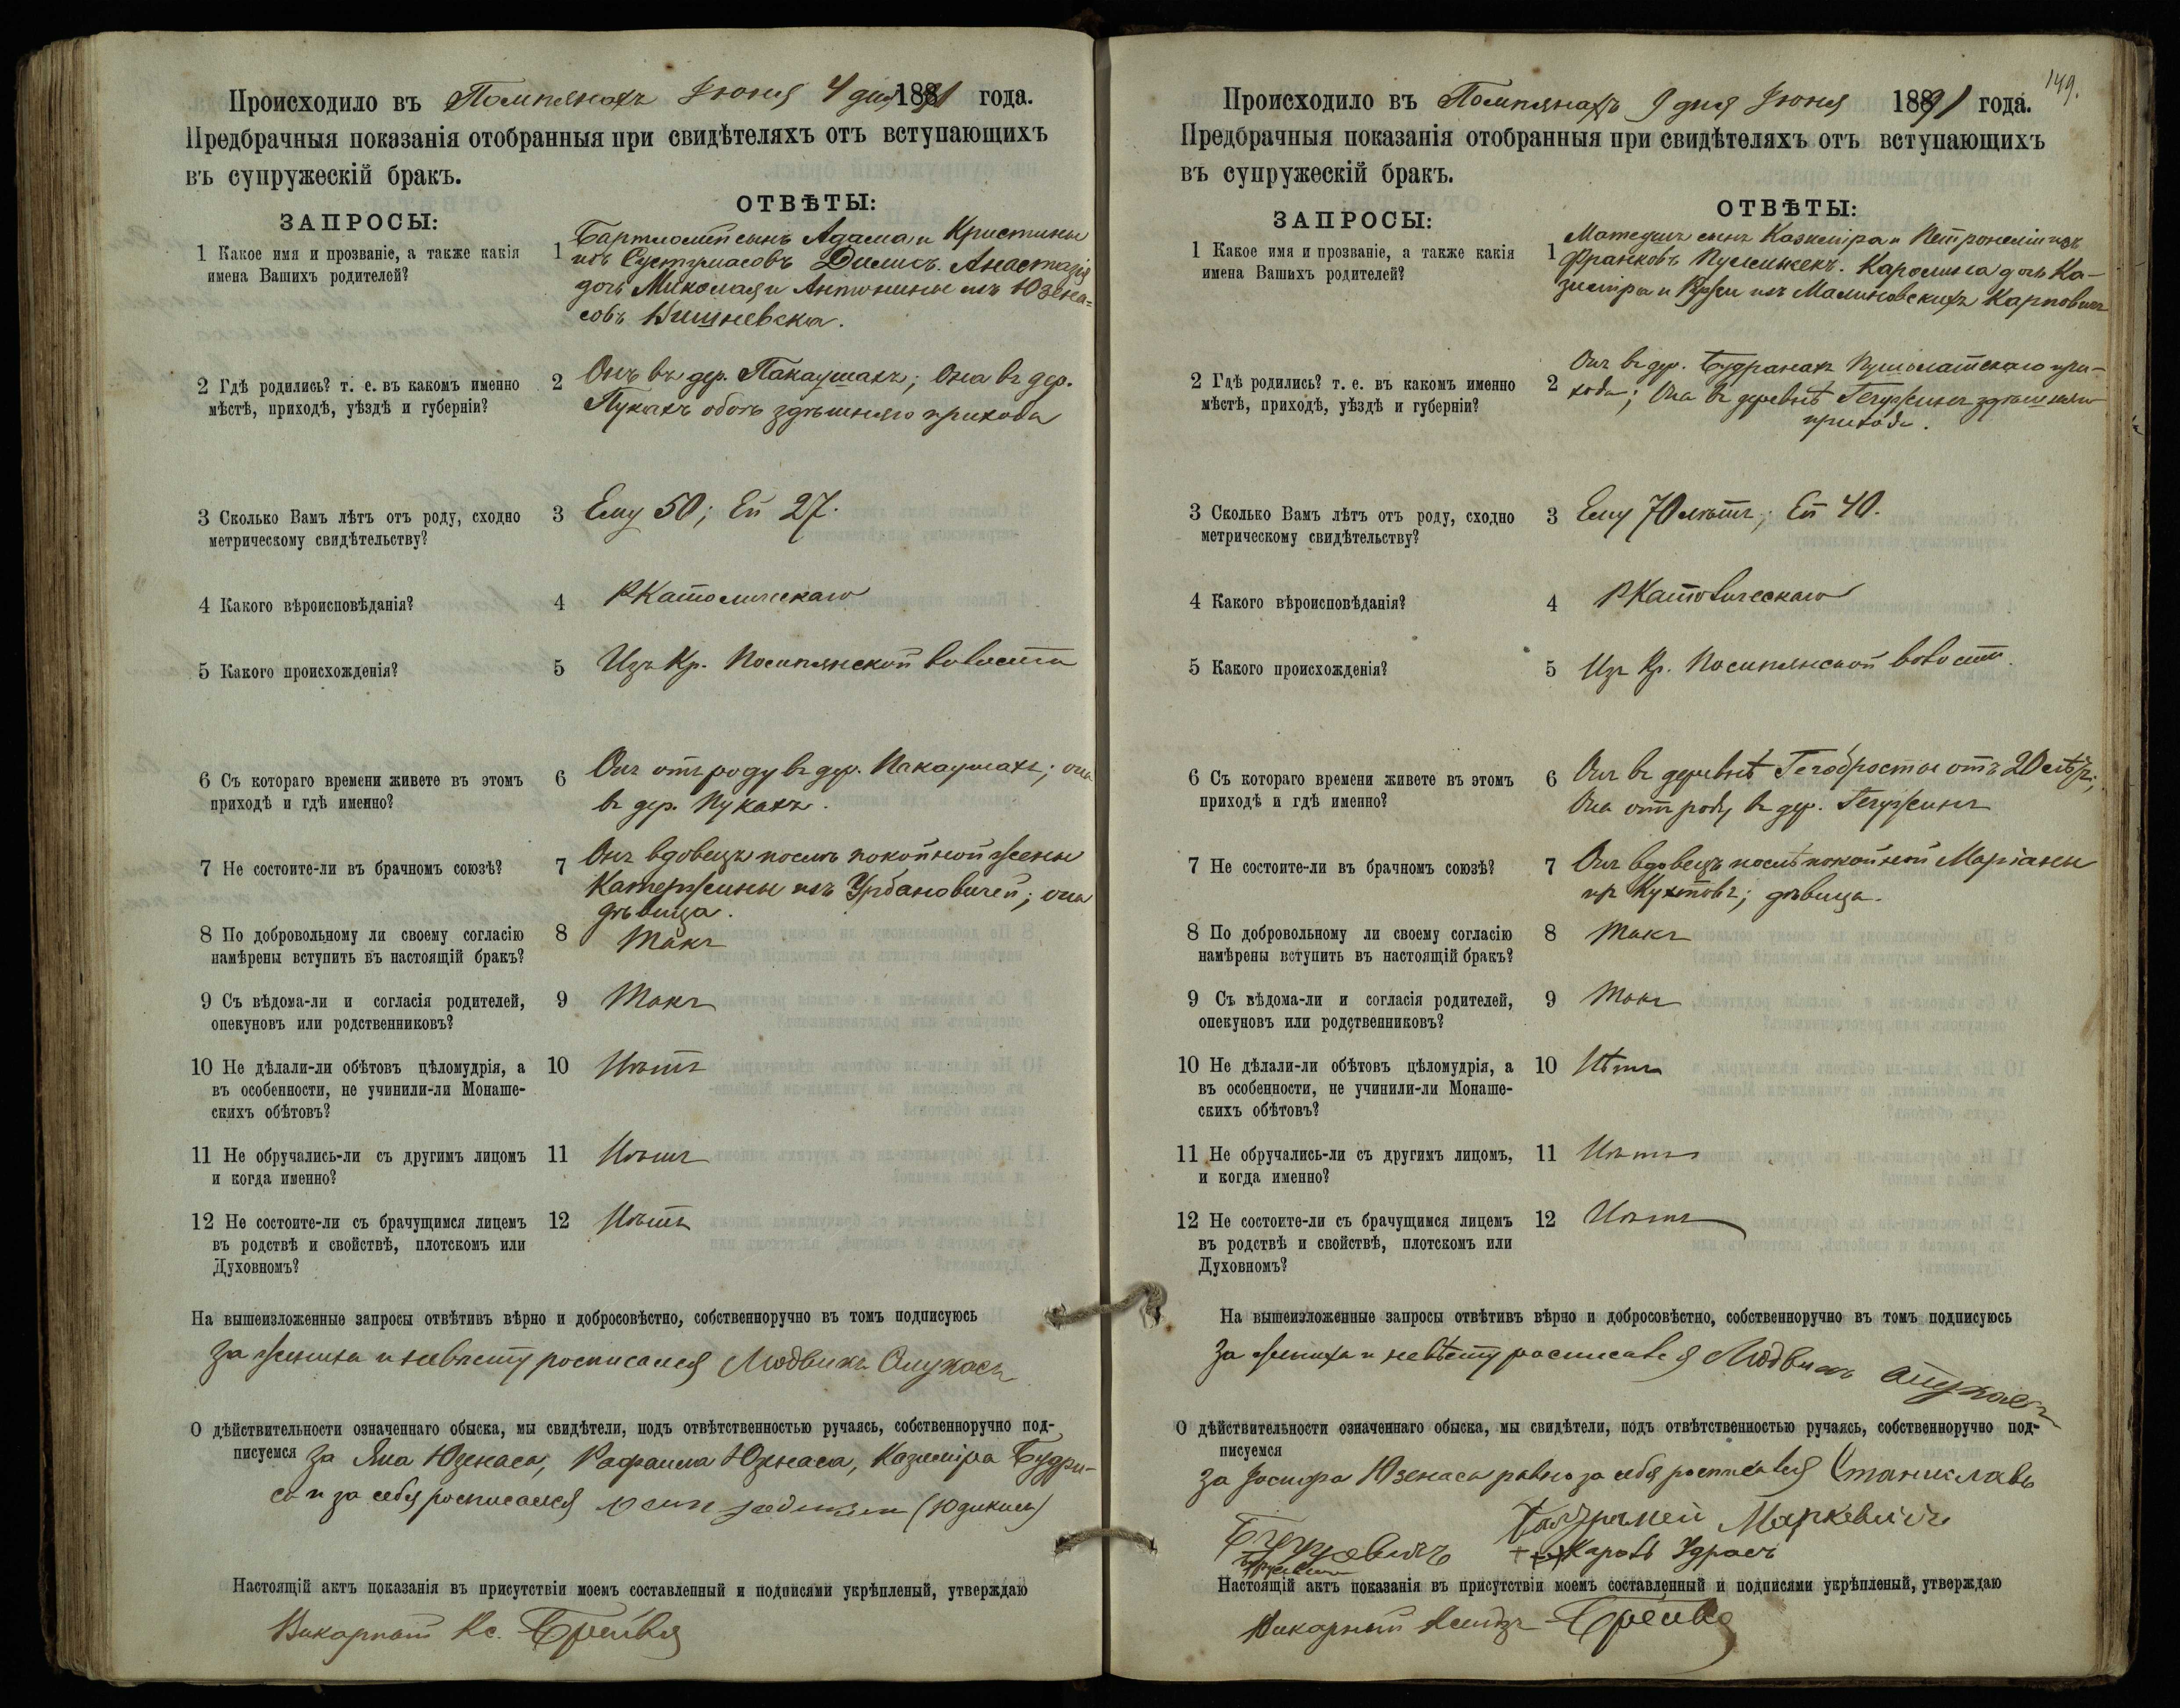 Происходило въ Помпянахъ Іюня 4 дня 1891 года.
Предбрачныя показанія отобранныя при свидѣтеляхъ отъ вступающихъ
въ супружескій бракъ.
ЗАПРОСЫ:
ОТВѢТЫ:
1 Какое имя и прозваніе, а также какія
имена Вашихъ родителей?
1 Бартломей сынъ Адама и Кристины
изъ Дилисъ. Анастазія
дочь Миколая и Антонины изъ Юзена-
совъ Вишневска.
2 Гдѣ родились? т. е. въ какомъ именно
мѣстѣ, приходѣ, уѣздѣ и губерніи?
2 Онъ въ дер. Пакаушахъ; Она въ дер.
Пукахъ обоъ здѣшняго прихода
3 Сколько Вамъ лѣтъ отъ роду, сходно
метрическому свидѣтельству?
3 Ему 50; Ей 27.
4 Какого вѣроисповѣданія?
4 РКатолическаго
5 Какого происхожденія?
5 Изъ Кр. Помпянской волости
6 Съ котораго времени живете въ этомъ
приходѣ и гдѣ именно?
6 Онъ отъ роду въ дер. Пакаушахъ; она
въ дер. Пукахъ.
7 Не состоите-ли въ брачномъ союзѣ?
7 Онъ вдовецъ послѣ покойной жены
Катержины изъ Урбановичей; она
дѣвица.
8 По добровольному ли своему согласію
намѣрены вступить въ настоящій бракъ?
8 Такъ
9 Съ вѣдома-ли и согласія родителей,
опекуновъ или родственниковъ?
9 Такъ
10 Не дѣлали-ли обѣтовъ цѣломудрія, а
въ особенности, не учинили-ли Монаше-
скихъ обѣтовъ?
10 Нѣтъ
11 Не обручались-ли съ другимъ лицомъ
и когда именно?
11 Нѣтъ
12 Не состоите-ли съ брачущимся лицемъ
въ родствѣ и свойствѣ, плотскомъ или
Духовномъ?
12 Нѣтъ
На вышеизложенные запросы отвѣтивъ вѣрно и добросовѣстно, собственноручно въ томъ подписуюсь
За жениха и невѣсту росписался Людвикъ
О дѣйствительности означеннаго обыска, мы свидѣтели, подъ отвѣтственностью ручаясь, собственноручно под-
писуемся За Яна Юзенаса, Рафаила Юзенаса, Казиміра Будри-
са и за себя росписался (Юдикись)
Настоящій актъ показанія въ присутствіи моемъ составленный и подписями укрѣпленый, утверждаю
Викарный Кс. Брейва
149.
Происходило въ Помпянахъ 9 дня Іюня 1891 года.
Предбрачныя показанія отобранныя при свидѣтеляхъ отъ вступающихъ
въ супружескій бракъ.
ЗАПРОСЫ:
ОТВѢТЫ:
1 Какое имя и прозваніе, а также какія
имена Вашихъ родителей?
1 Матеушъ сынъ Казиміра и Петронеліи изъ
Франковъ. Каролина дочь Ка-
зиміра и Розы изъ Малиновскихъ Карповичъ
2 Гдѣ родились? т. е. въ какомъ именно
мѣстѣ, приходѣ, уѣздѣ и губерніи?
2 Онъ въ дер. Будранахъ Пушолатскаго при-
хода; Она въ деревнѣ здѣшняго
прихода.
3 Сколько Вамъ лѣтъ отъ роду, сходно
метрическому свидѣтельству?
3 Ему 70 лѣтъ; Ей 40.
4 Какого вѣроисповѣданія?
4 РКатолическаго
5 Какого происхожденія?
5 Изъ Кр. Помпянской волости.
6 Съ котораго времени живете въ этомъ
приходѣ и гдѣ именно?
6 Онъ въ деревнѣ отъ 20 лѣтъ;
Она отъ роду въ дер.
7 Не состоите-ли въ брачномъ союзѣ?
7 Онъ вдовецъ послѣ покойной Маріаны
изъ; дѣвица.
8 По добровольному ли своему согласію
намѣрены вступить въ настоящій бракъ?
8 Такъ
9 Съ вѣдома-ли и согласія родителей,
опекуновъ или родственниковъ?
9 Такъ
10 Не дѣлали-ли обѣтовъ цѣломудрія, а
въ особенности, не учинили-ли Монаше-
скихъ обѣтовъ?
10 Нѣтъ
11 Не обручались-ли съ другимъ лицомъ,
и когда именно?
11 Нѣтъ
12 Не состоите-ли съ брачущимся лицемъ
въ родствѣ и свойствѣ, плотскомъ или
Духовномъ?
12 Нѣтъ
На вышеизложенные запросы отвѣтивъ вѣрно и добросовѣстно, собственноручно въ томъ подписуюсь
За жениха и невѣсту росписался Людвикъ
О дѣйствительности означеннаго обыска, мы свидѣтели, подъ отвѣтственностью ручаясь, собственноручно под-
писуемся
За Іосифа Юзенаса равно за себя росписался Станиславъ
Маркевичъ
+++ Кароль
Настоящій актъ показанія въ присутствіи моемъ составленный и подписями укрѣпленый, утверждаю
Викарный Ксендзъ Брейва